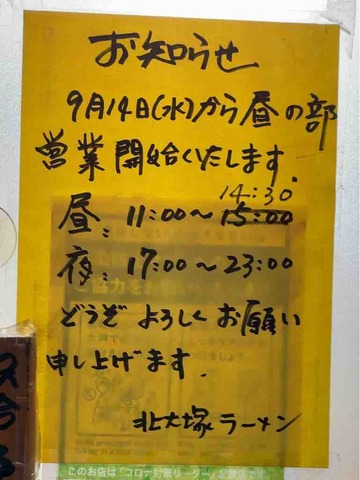 お知らせ
9月14日(水)から昼の部
営業開始いたします。
14:30
昼: 11:00～15:00
夜: 17:00～23:00
どうぞよろしくお願い
申し上げます.
北大塚ラーメン
このお店は「コロナ対策リーダー」